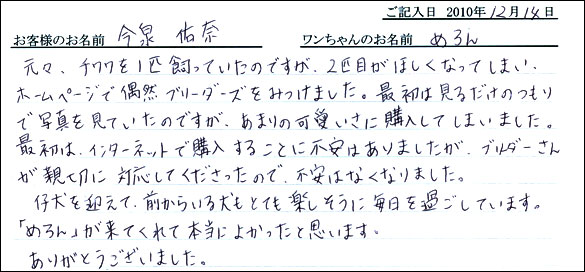 ご記入日 2010年12月14日
お客様のお名前 今泉 佑奈 ワンちゃんのお名前 めろん
元々、チワワを1匹飼っていたのですが、2匹目がほしくなってしまい、
ホームページで偶然ブリーダーズをみつけました。最初は見るだけのつもり
で写真を見ていたのですが、あまりの可愛いさに購入してしまいました。
最初は、インターネットで購入することに不安はありましたが、ブリーダーさん
が親切に対応してくださったので、不安はなくなりました。
仔犬を迎えて、前からいる犬もとても楽しそうに毎日を過ごしています。
「めろん」が来てくれて本当によかったと思います。
ありがとうございました。